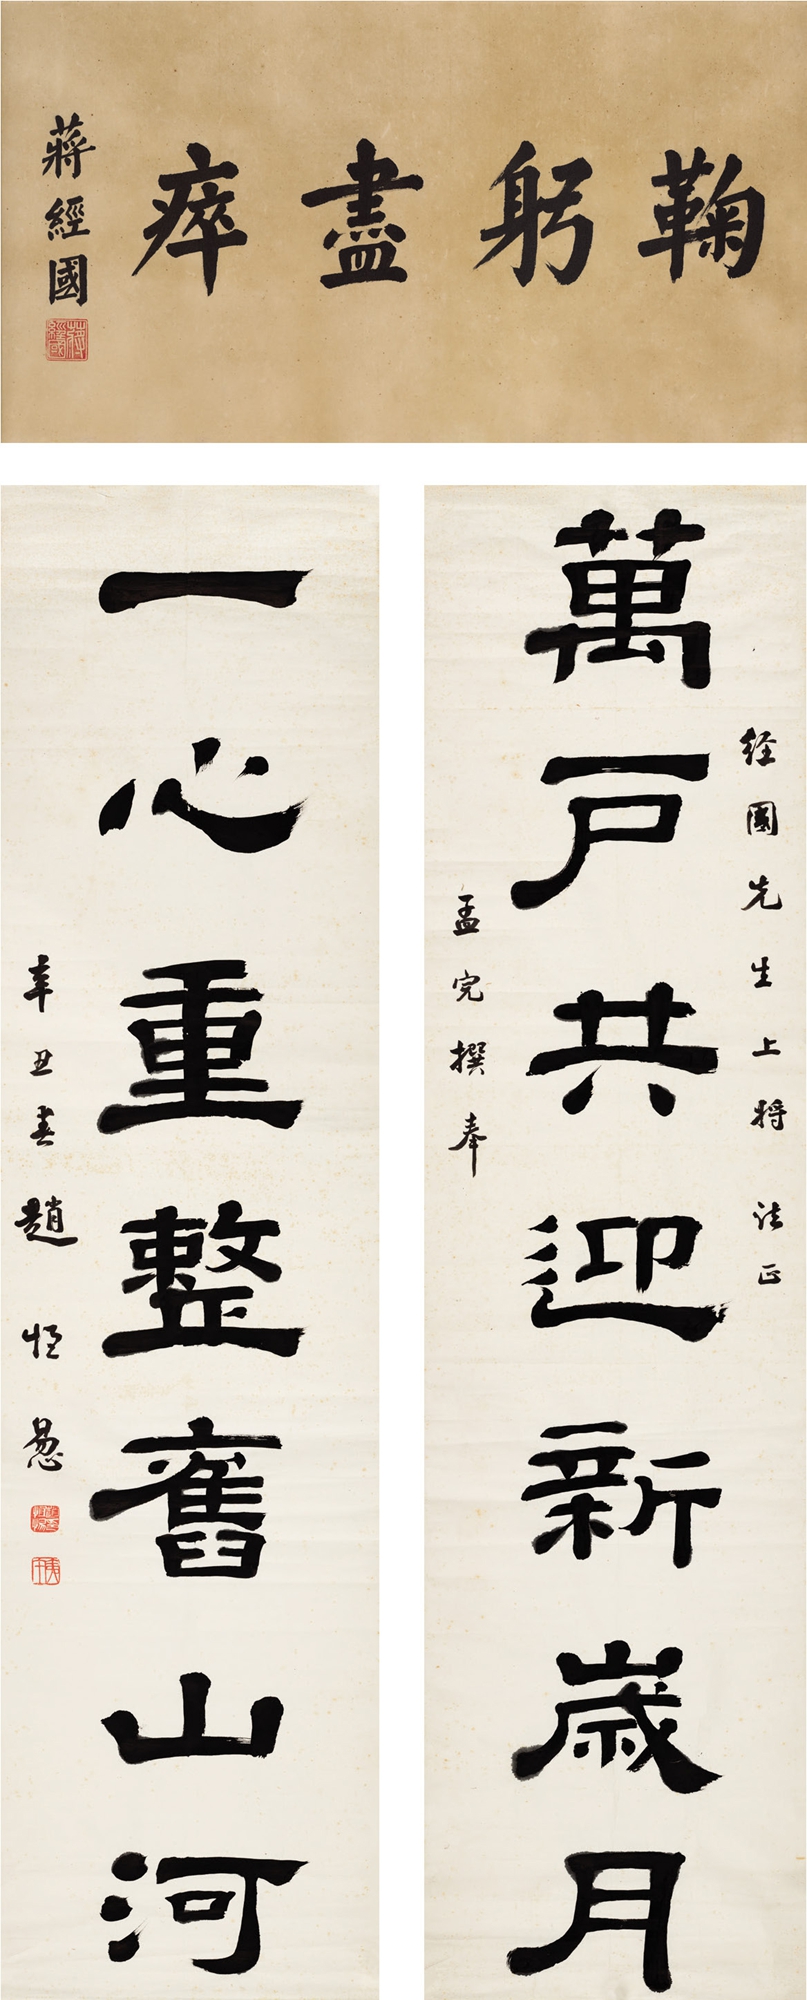 鞠躬盡瘁
蔣經國
蔣經國
经國先生上将 法正
萬戶共迎新歲月
孟完撰奉
一心重整舊山河
辛丑春趙恒惖